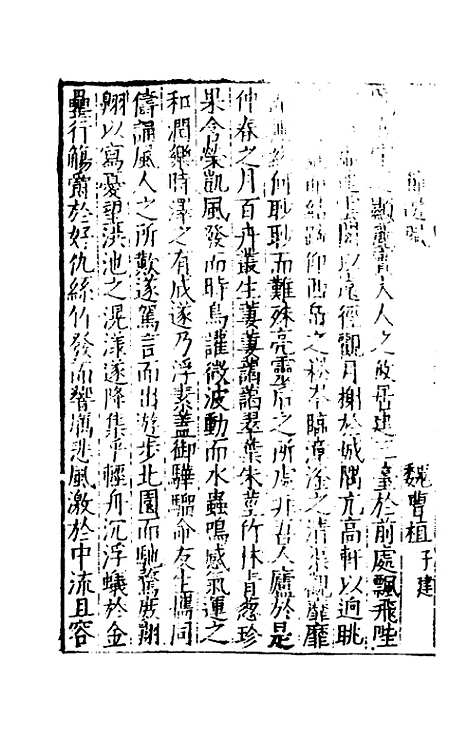 節遊賦
魏曹植子建
顯麗實大人之攸居建三臺於前處飄飛陛
雲閣以
徑觀月榭於城隅亢高軒以迥眺
結
仰西岳之崧岑臨漳滏之清渠觀靡靡
何眇眇而難殊亮靈后之所處非吾人廬於是
仲春之月百卉叢生萋萋藹藹翠葉朱莖竹林青葱珍
果含榮凱風發而時鳥讙微波動而水蟲鳴感氣運之
和潤樂時澤之有成遂乃浮素蓋御驊騮命友生攜同
儔誦風人之所歎遂駕言而出遊步北園而馳騖庶翱
翔以寫憂望洪池之滉漾遂降集乎輕舟沉浮蟻於金
罍行觴爵於好仇絲竹發而響厲悲風激於中流且容